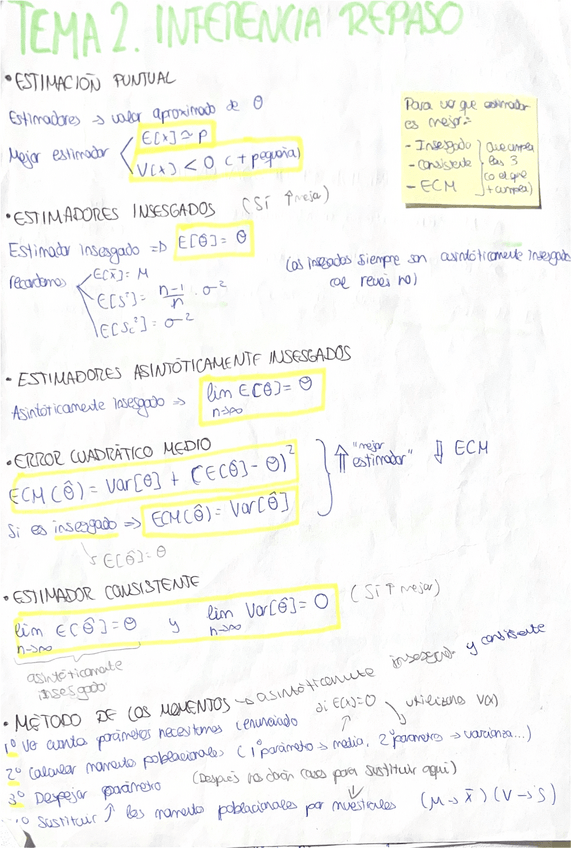 TEMA 2. INFERENCIA REPASO
• ESTIMACIÓN PUNTUAL
Estimadores → valor aproximado de θ
Mejor estimador
E[x] ≃ p
V(x) < 0 (+ pequeña)
Para ver que estimador
es mejor:
- Insesgado
- Consistente
- ECM
Que cumpla
las 3
(o el que
+ cumpla)
• ESTIMADORES INSESGADOS (Sí ↑ mejor)
Estimador insesgado => E[θ̂] = θ
recordamos
E[x̄] = M
E[S²] = n-1/n · σ²
E[Sc²] = σ²
(os insegados siempre son asintóticamente insesgado
(al revés no)
• ESTIMADORES ASINTÓTICAMENTE INSESGADOS
Asintóticamente insesgado => lim E[θ̂] = θ
n→∞
• ERROR CUADRÁTICO MEDIO
ECM(θ̂) = Var[θ] + (E[θ̂] - θ)²
Si es insesgado => ECM(θ̂) = Var[θ̂]
↳ E[θ̂] = θ
⇑ "mejor estimador" ⇓ ECM
• ESTIMADOR CONSISTENTE
lim E[θ̂] = θ y lim Var[θ̂] = 0 (Sí ↑ mejor)
n→∞ n→∞
asintóticamente
insesgado
• MÉTODO DE LOS MOMENTOS → asintóticamente insesgado y consistente
si E(x)=0 utilizamos V(x)
1º Ver cuantos parámetros necesitamos (enunciado
2º Calcular momento poblacionales (1º parámetro → media, 2º parámetro → varianza...)
3º Despejar parámetro (Después nos darán casos para sustituir aquí)
4º Sustituir los momento poblacionales por muestrales (M → x̄) (V → S)